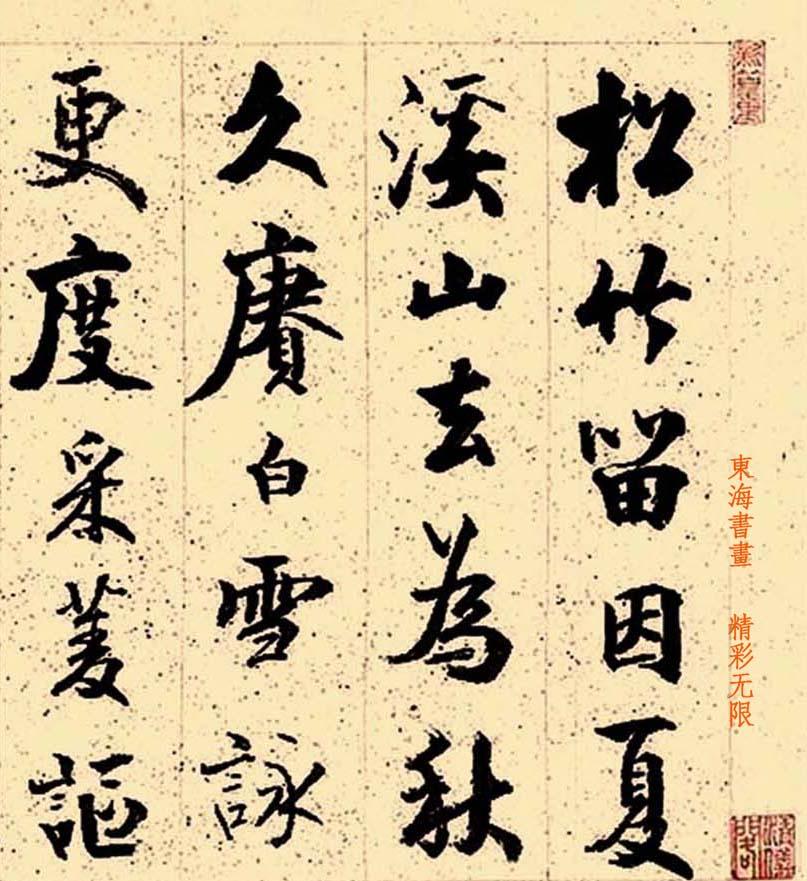 東海書畫 精彩无限
松竹留因夏
溪山去為秋
久賡白雪詠
更度采菱謳